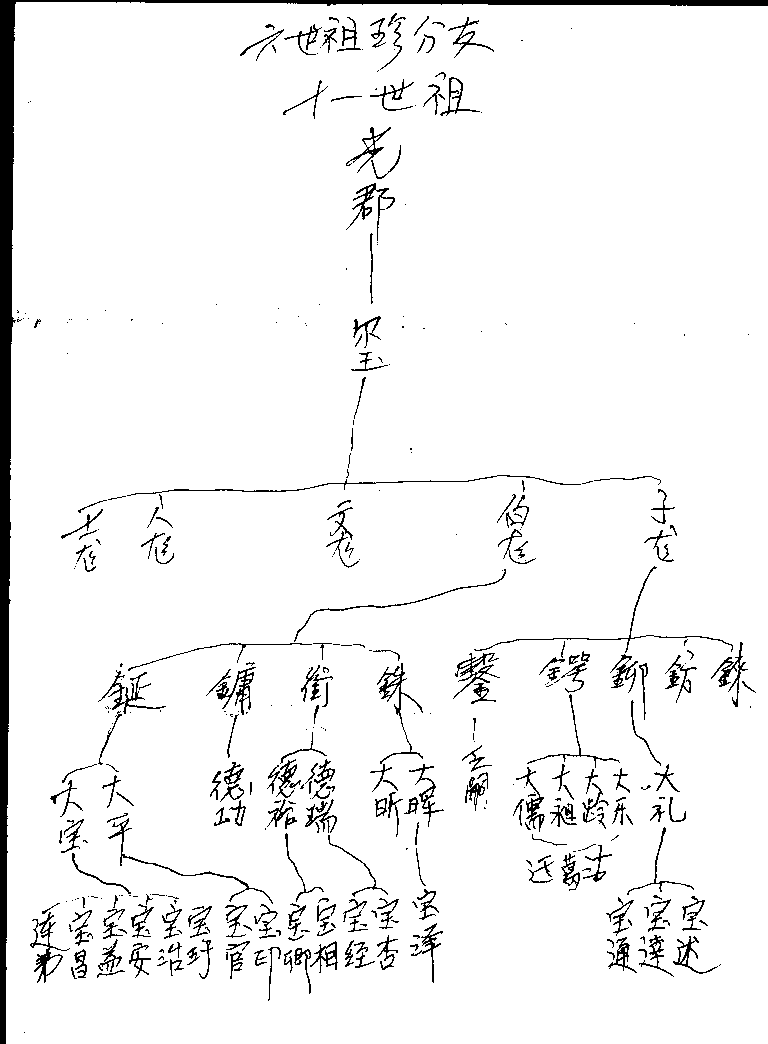 六世祖珍分友
十一世祖
光郡
玺
士尨 人尨 文尨 伯尨 子尨
鋋 鏞 衔 銖 鑿 鍔 鉚 鈁 錸
大宝 大平 德功 德裕 德瑞 大昕 大暉 乏嗣 大儒 大祖 大龄 大乐 大礼
迁葛洁
连弟 宝昌 宝益 宝安 宝浩 宝玗 宝官 宝印 宝卿 宝相 宝经 宝杏 宝泽 宝通 宝達 宝述